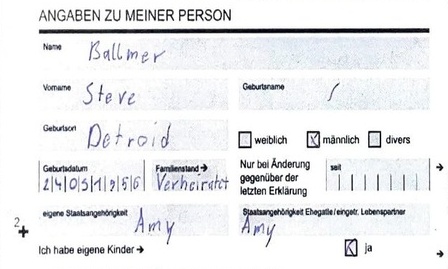 ANGABEN ZU MEINER PERSON
Name Ballmer
Vorname Steve Geburtsname /
Geburtsort Detroid weiblich männlich divers
Geburtsdatum Familienstand → Nur bei Änderung gegenüber der letzten Erklärung seit →
24031956 Verheiratet
2 eigene Staatsangehörigkeit Amy Staatsangehörigkeit Ehegatte/eingetr. Lebenspartner Amy
Ich habe eigene Kinder → ja →